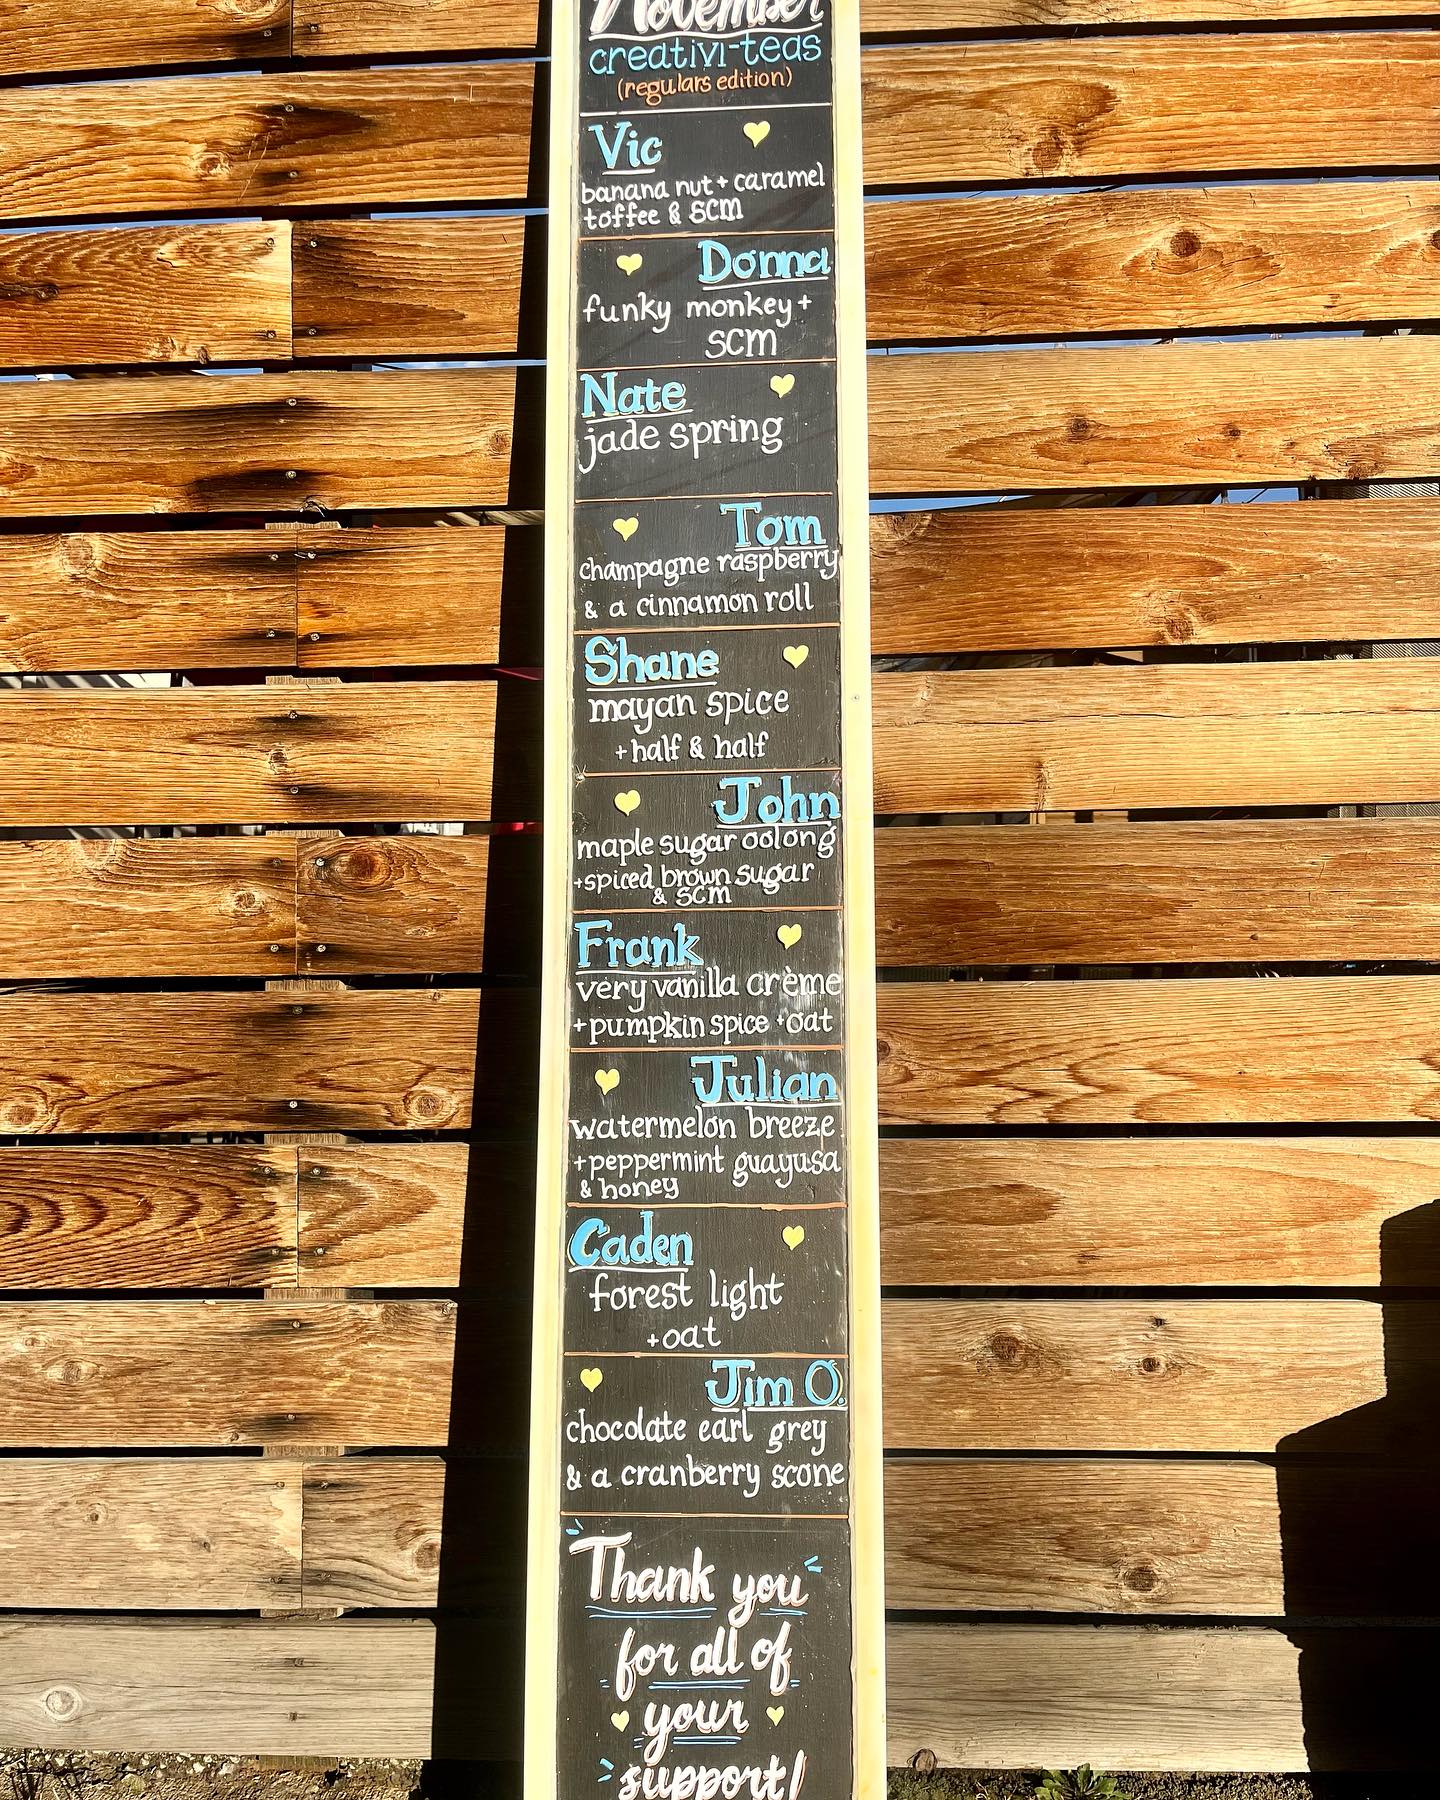 November
creativi-teas
(regulars edition)
Vic
banana nut + caramel
toffee & SCM
Donna
funky monkey +
SCM
Nate
jade spring
Tom
champagne raspberry
& a cinnamon roll
Shane
mayan spice
+ half & half
John
maple sugar oolong
+ spiced brown sugar
& SCM
Frank
very vanilla crème
+ pumpkin spice + oat
Julian
watermelon breeze
+ peppermint guayusa
& honey
Caden
forest light
+ oat
Jim O.
chocolate earl grey
& a cranberry scone
Thank you
for all of
your
support!